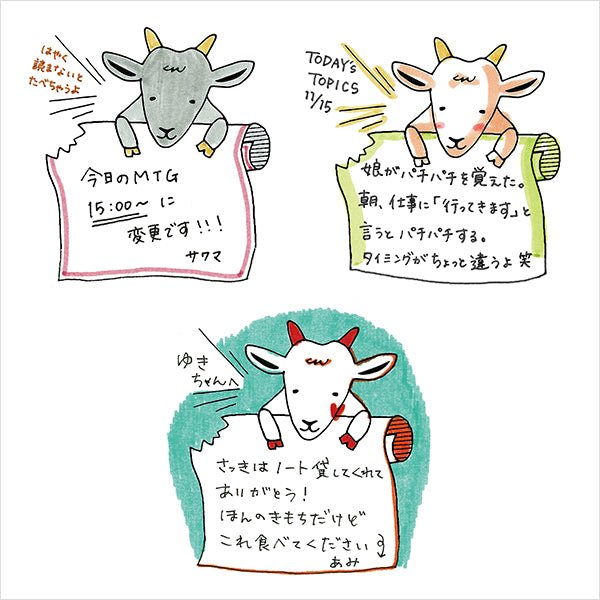 はやく
読まないと
たべちゃうよ
今日のMTG
15:00〜に
変更です!!!
サワマ
TODAY's
TOPICS
11/15
娘がパチパチを覚えた。
朝、仕事に「行ってきます」と
言うとパチパチする。
タイミングがちょっと違うよ 笑
ゆき
ちゃんへ
さっきはノート貸してくれて
ありがとう!
ほんのきもちだけど
これ食べてください
あみ